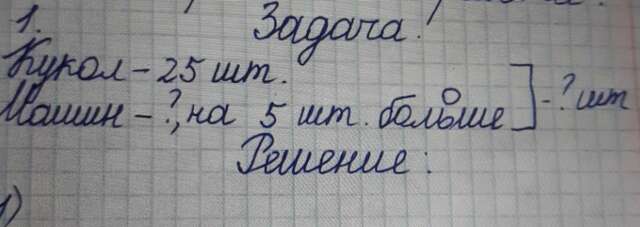 1.
Задача!
Кукол - 25 шт.
Машин - ?, на 5 шт. больше ] - ? шт
Решение:
1)